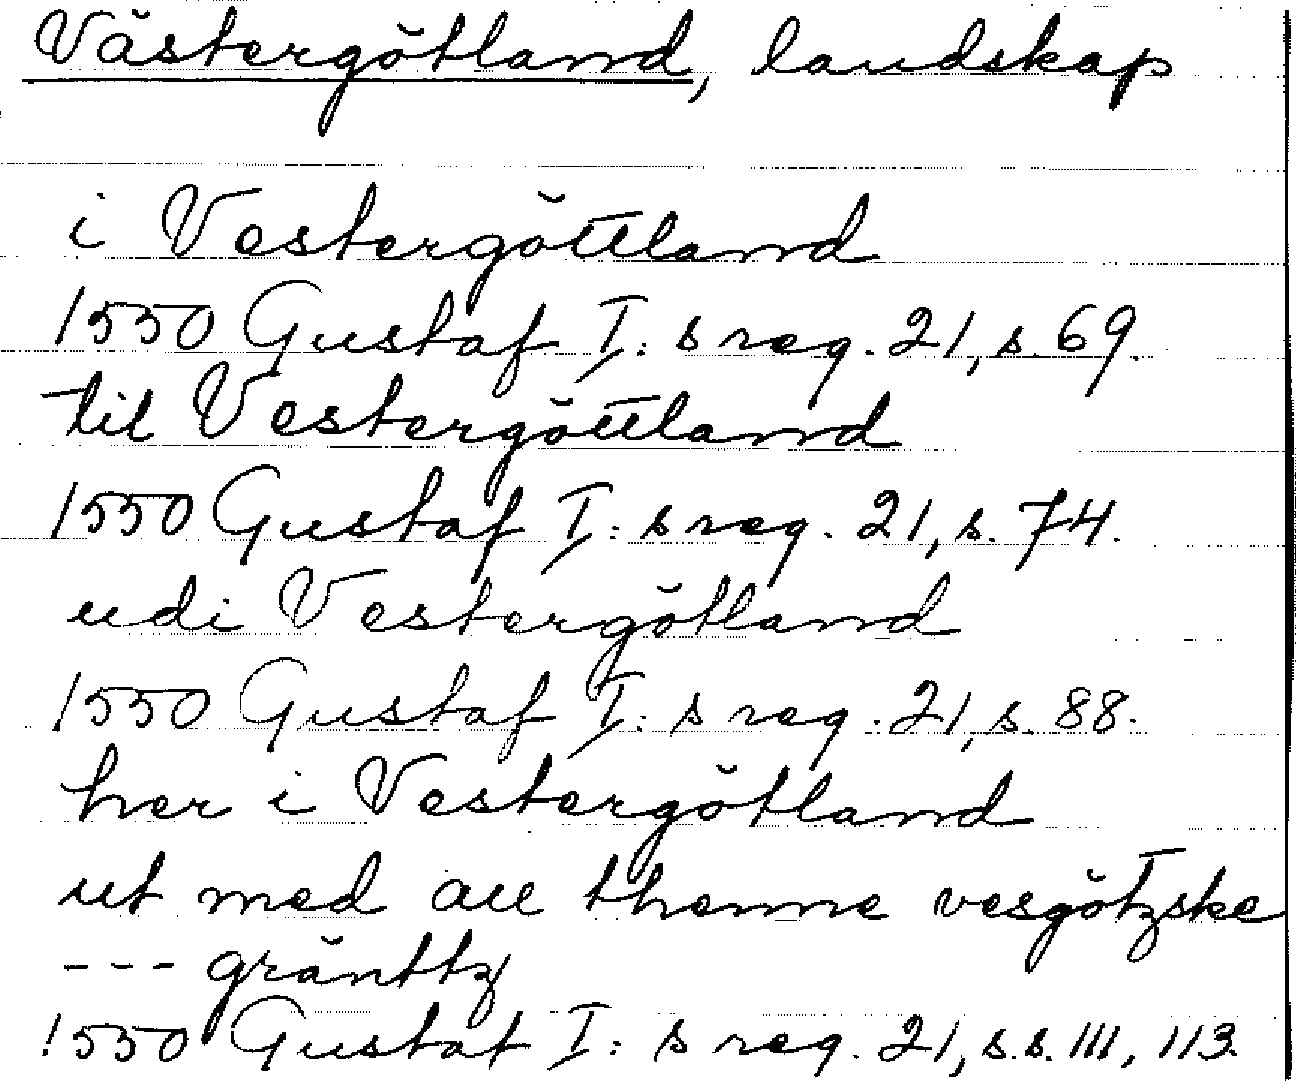 Västergötland, landskap
i Vestergöttland
1550 Gustaf I: s reg. 21, s. 69.
til Vestergöttland
1550 Gustaf I: s reg. 21, s. 74.
udi Vestergötland
1550 Gustaf I: s reg. 21, s. 88.
her i Vestergötland
ut med all thenne vesgötzske
--- gränttz
1550 Gustaf I: s reg. 21, s.s. 111, 113.